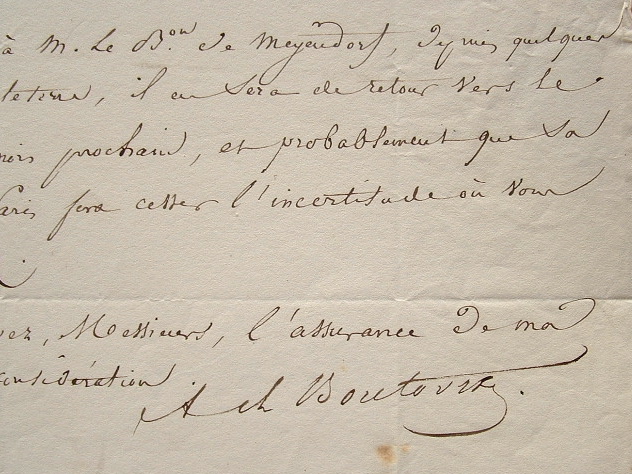 à M. Le Bon de Meyendorf, depuis quelques
leterre, il en sera de retour vers le
mois prochain, et probablement que sa
Paris fera cesser l'incertitude où vous
.
vez, Messieurs, l'assurance de ma
considération
A ch Boutovsky.